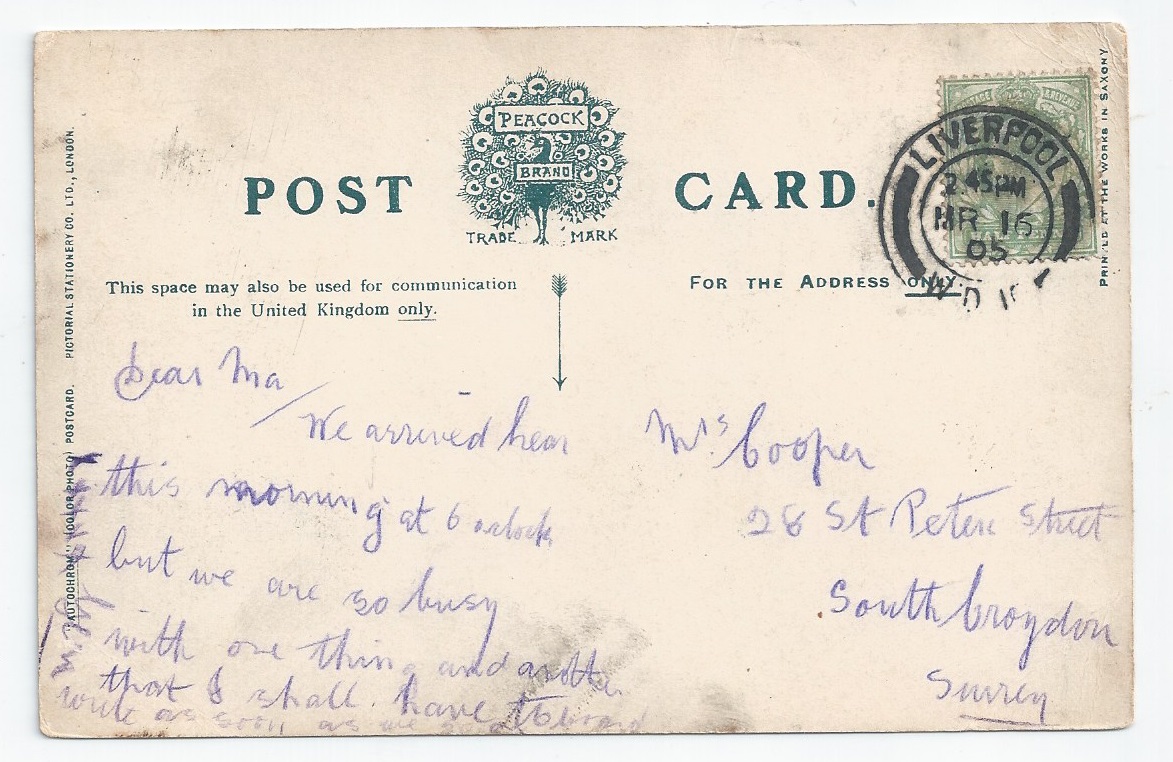 POST CARD.
PEACOCK
BRAND
TRADE MARK
This space may also be used for communication
in the United Kingdom only.
FOR THE ADDRESS ONLY.
LIVERPOOL
2.45PM
MR 16
05
PICTORIAL STATIONERY CO. LTD., LONDON.
"AUTOCHROM" POSTCARD.
PRINTED AT THE WORKS IN SAXONY
Dear Ma
We arrived hear
this morning at 6 oclock
but we are so busy
with one thing and another
that I shall have to
write as soon as we
Mrs Cooper
28 St Peters Street
South Croydon
Surrey